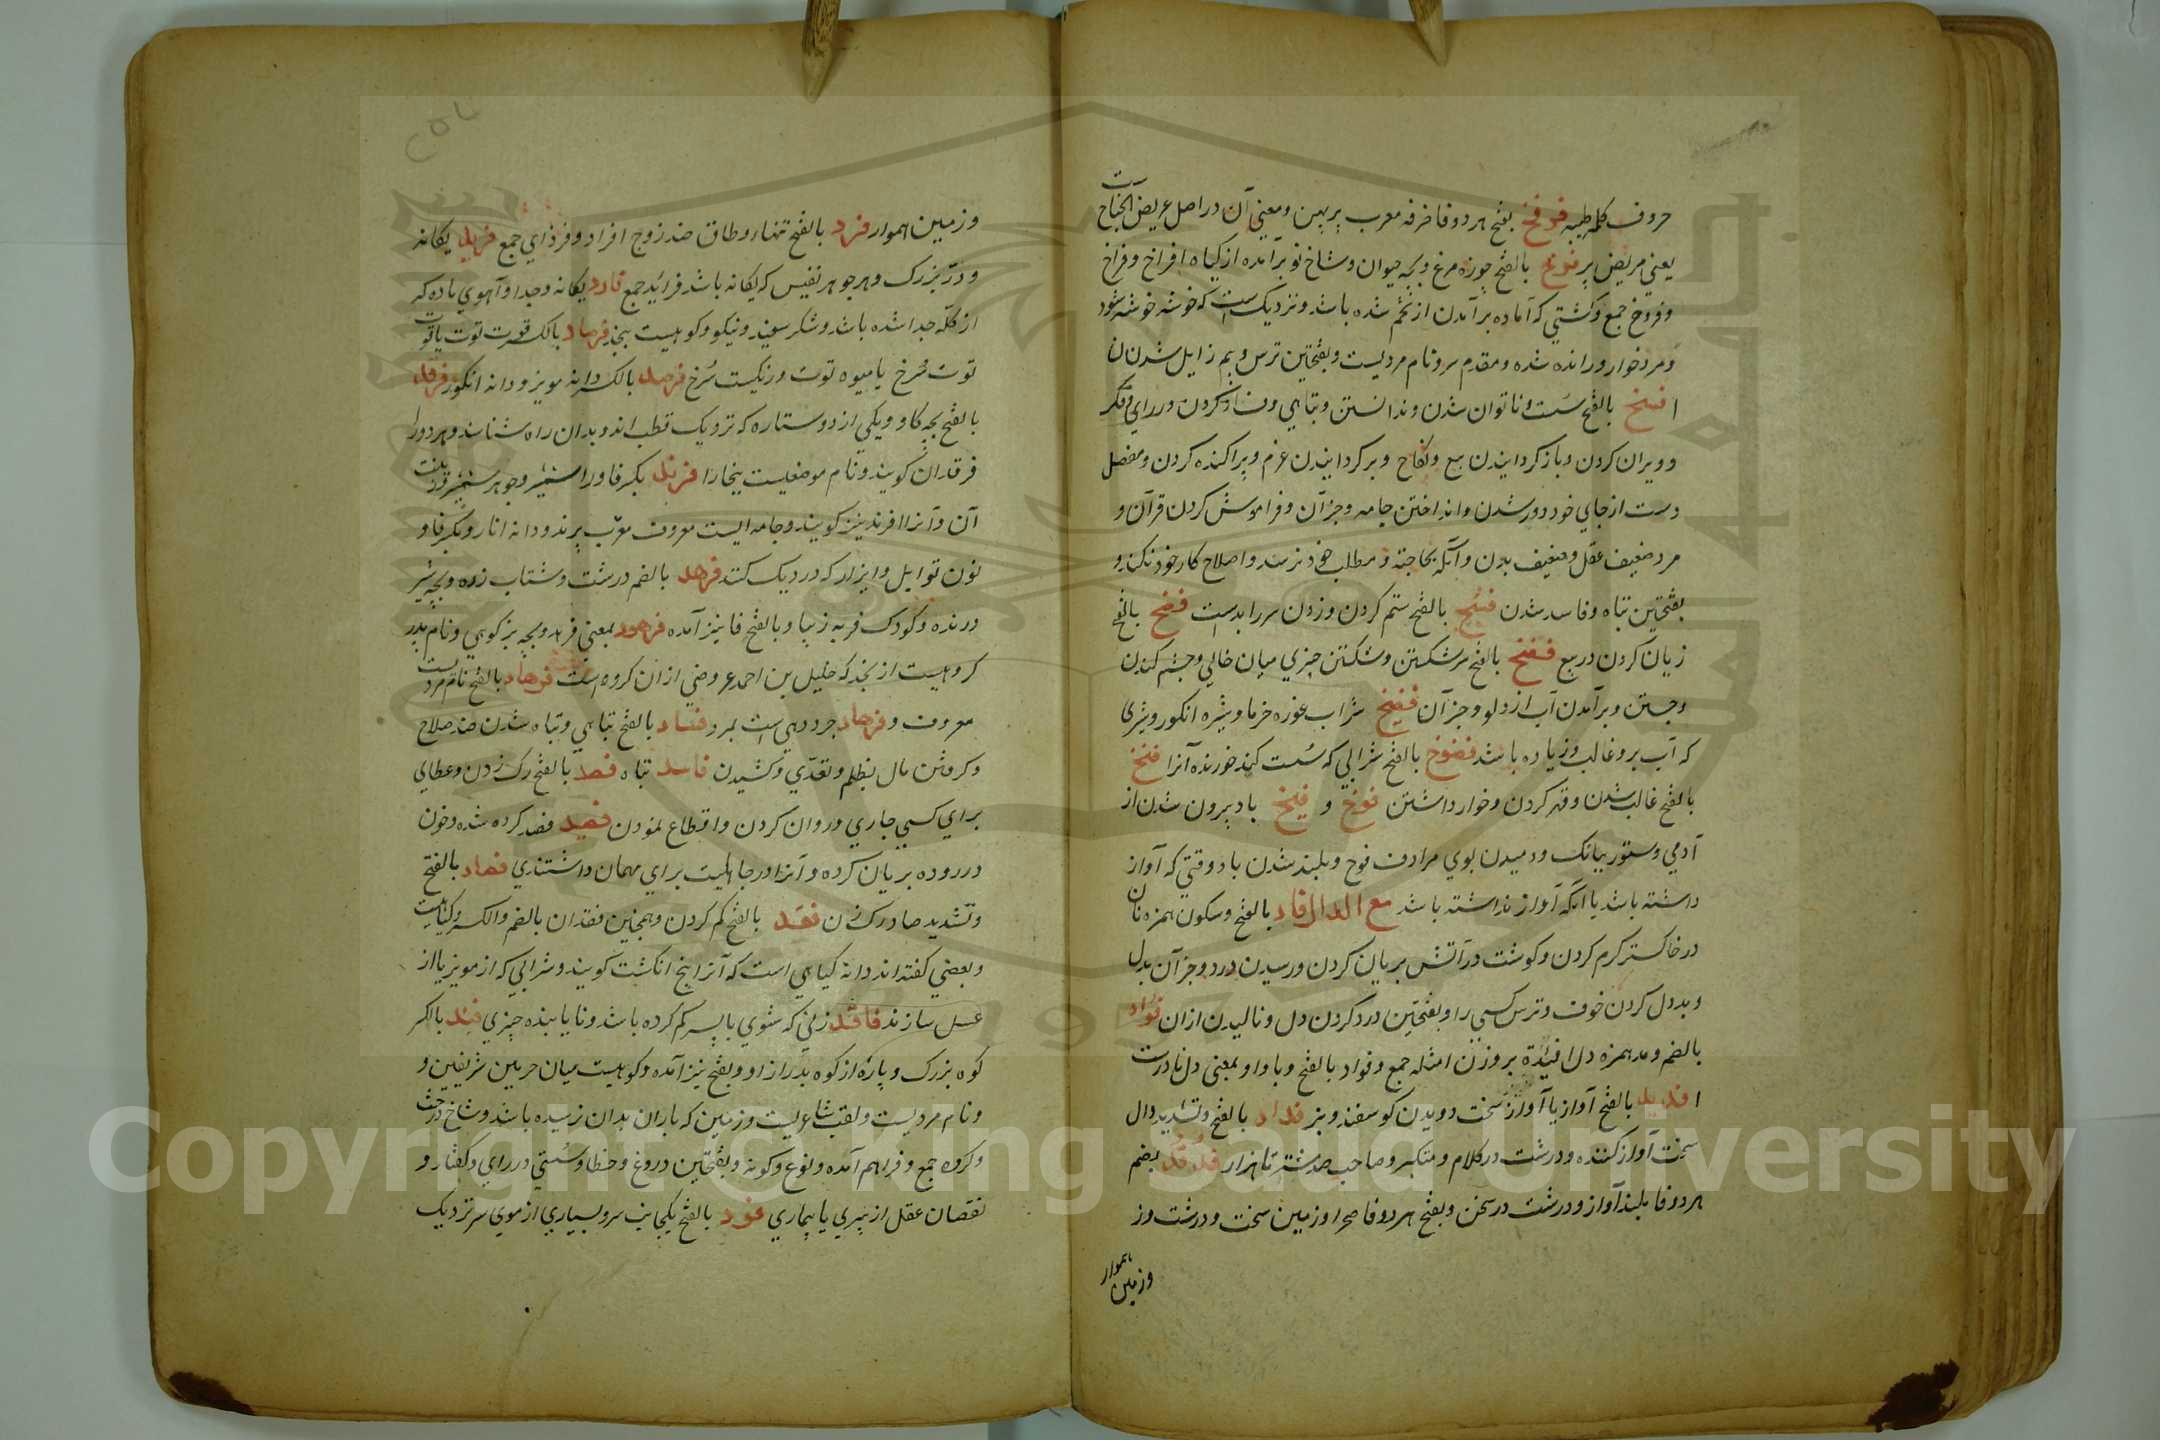 حروف کلمه طیبه فرفخ بفتح هر دو فا خرفه معرب پرپهن و معنی آن در اصل عریض الجناح ست
یعنی عریض پر فرخ بالفتح چوزه مرغ و بچه حیوان و شاخ نو برآمده از کیاه افراخ و فراخ
و فروخ جمع و کشتی که آماده برآمدن از تخم شده باشد و نزدیک است که خوشه خوشه شود
و مرد خوار و رانده شده و مقدم سر و نام مردیست و بفتحتین ترس و بیم زایل شدن
فسخ بالفتح سست و ناتوان شدن و ندانستن و تباهی و فساد کردن در رای و فکر
و ویران کردن و باز کردانیدن بیع و نکاح و برکردانیدن عزم و پراکنده کردن و مفصل
دست از جای خود دور شدن و انداختن جامه و جز آن و فراموش کردن قرآن و
مرد ضعیف عقل و ضعیف بدن و آنکه بحاجت و مطلب خود نرسد و اصلاح کار خود نکند و
بفتحتین تباه و فاسد شدن بالفتح ستم کردن و زدن سر را بدست فضخ بالفتح
زیان کردن در بیع بالفتح سر شکستن و شکستن چیزی میان خالی و چشم کندن
و جستن و برآمدن آب از دلو و جز آن فضیخ شراب غوره خرما و شیره انکور و شیری
که آب برو غالب و زیاده باشد فضوخ بالفتح شرابی که سست کند خورنده آنرا فنخ
بالفتح غالب شدن و قهر کردن و خوار داشتن فوخ و فیخ باد بیرون شدن از
آدمی و ستور ببانک و دمیدن بوی مرادف فوح و بلند شدن باد وقتی که آواز
داشته باشد یا آنکه آواز نداشته باشد مع الدال فاد بالفتح و سکون همزه نان
در خاکستر کرم کردن و کوشت در آتش بریان کردن و رسیدن درد و جز آن بدل
و بددل کردن خوف و ترس کسی را و بفتحتین درد کردن دل و نالیدن از آن فواد
بالضم و مد همزه دل افئدة بر وزن امثله جمع و فواد بالفتح و با واو بمعنی دل نادرست
فدید بالفتح آواز یا آواز سخت دویدن کوسفند و بز فداد بالفتح و تشدید دال
سخت آواز کننده و درشت در کلام و متکبر و صاحب صد شتر تا هزار فدفد بضم
هر دو فا بلند آواز و درشت در سخن و بفتح هر دو فا صحرا و زمین سخت و درشت و ز
و زمین هموار
و زمین هموار فرد بالفتح تنها و طاق ضد زوج افراد و فرادی جمع فرید یکانه
و در بزرک و هر جوهر نفیس که یکانه باشد فرائد جمع فارد یکانه و جدا و آهوی ماده که
از کله جدا شده باشد و شکر سفید و نیکو و کوهیست بنجد فرصاد بالکسر توت یا
توت سرخ یا میوه توت و رنکیست سرخ فرصد بالکسر دانه مویز و دانه انکور فرقد
بالفتح بچه کاو و یکی از دو ستاره که نزدیک قطب اند و بدان راه شناسند و هر دو را
فرقدان کویند و نام موضعیست ببخارا فرند بکسر فا و را شمشیر و جوهر شمشیر
آن و آنرا افرند نیز کویند و جامه ایست معروف معرب پرند و دانه انار و بکسر فا و
نون توابل و ابزار که در دیک کنند فرهد بالضم درشت و شتاب زده و بچه شیر
درنده و کودک فربه زیبا و بالفتح فا نیز آمده فرهود بمعنی فرهد و بچه بز کوهی و نام پدر
کروهیست از نجد که خلیل بن احمد عروضی از آن کروه است فرهاد بالفتح نام مردیست
معروف و فرهاد جرد دهی است بمرو فساد بالفتح تباهی و تباه شدن ضد صلاح
و کرفتن مال بظلم و تعدی و کشیدن فاسد تباه فصد بالفتح رک زدن و عطای
برای کسی جاری و روان کردن و اقطاع نمودن فصید فصد کرده شده و خون
در روده بریان کرده و آنرا در جاهلیت برای مهمان داشتندی فصاد بالفتح
و تشدید صاد رک زن فقد بالفتح کم کردن و همچنین فقدان بالضم و الکسر و کیاهیست
و بعضی کفته اند دانه کیاهی است که آنرا پنج انکشت کویند و شرابی که از مویز یا از
عسل سازند فاقد زنی که شوی یا پسر کم کرده باشد و نایابنده چیزی فند بالکسر
کوه بزرک و پاره از کوه بدراز او و بفتح نیز آمده و کوهیست میان حرمین شریفین و
و نام مردیست و لقب شاعریست و زمین که باران بدان نرسیده باشد و شاخ درخت
و کروه جمع و فراهم آمده و نوع و کونه و بفتحتین دروغ و خطا و سستی در رای و کفتار و
نقصان عقل از پیری یا بیماری فود بالفتح یکجانب سر و بسیاری از موی سر نزدیک
Copyright © King Saud University